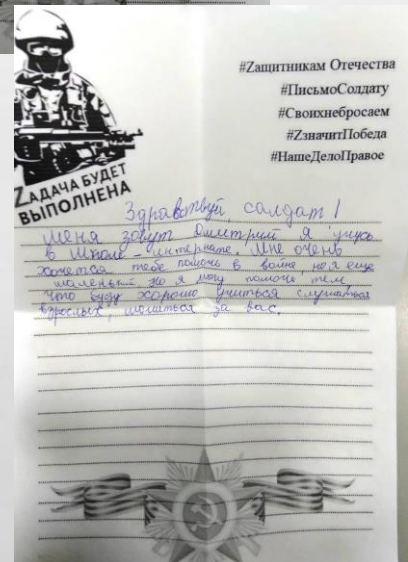 #Zащитникам Отечества
#ПисьмоСолдату
#Своихнебросаем
#ZзначитПобеда
#НашеДелоПравое
ZАДАЧА БУДЕТ
ВЫПОЛНЕНА
Здравствуй, салдат!
Меня зовут Дмитрий Я учусь
в Школе-интернате. Мне очень
хочется тебе помочь в войне, но я еще
маленький но я могу помочь тем
что буду хорошо учиться слушаться
взрослых, молиться за вас.